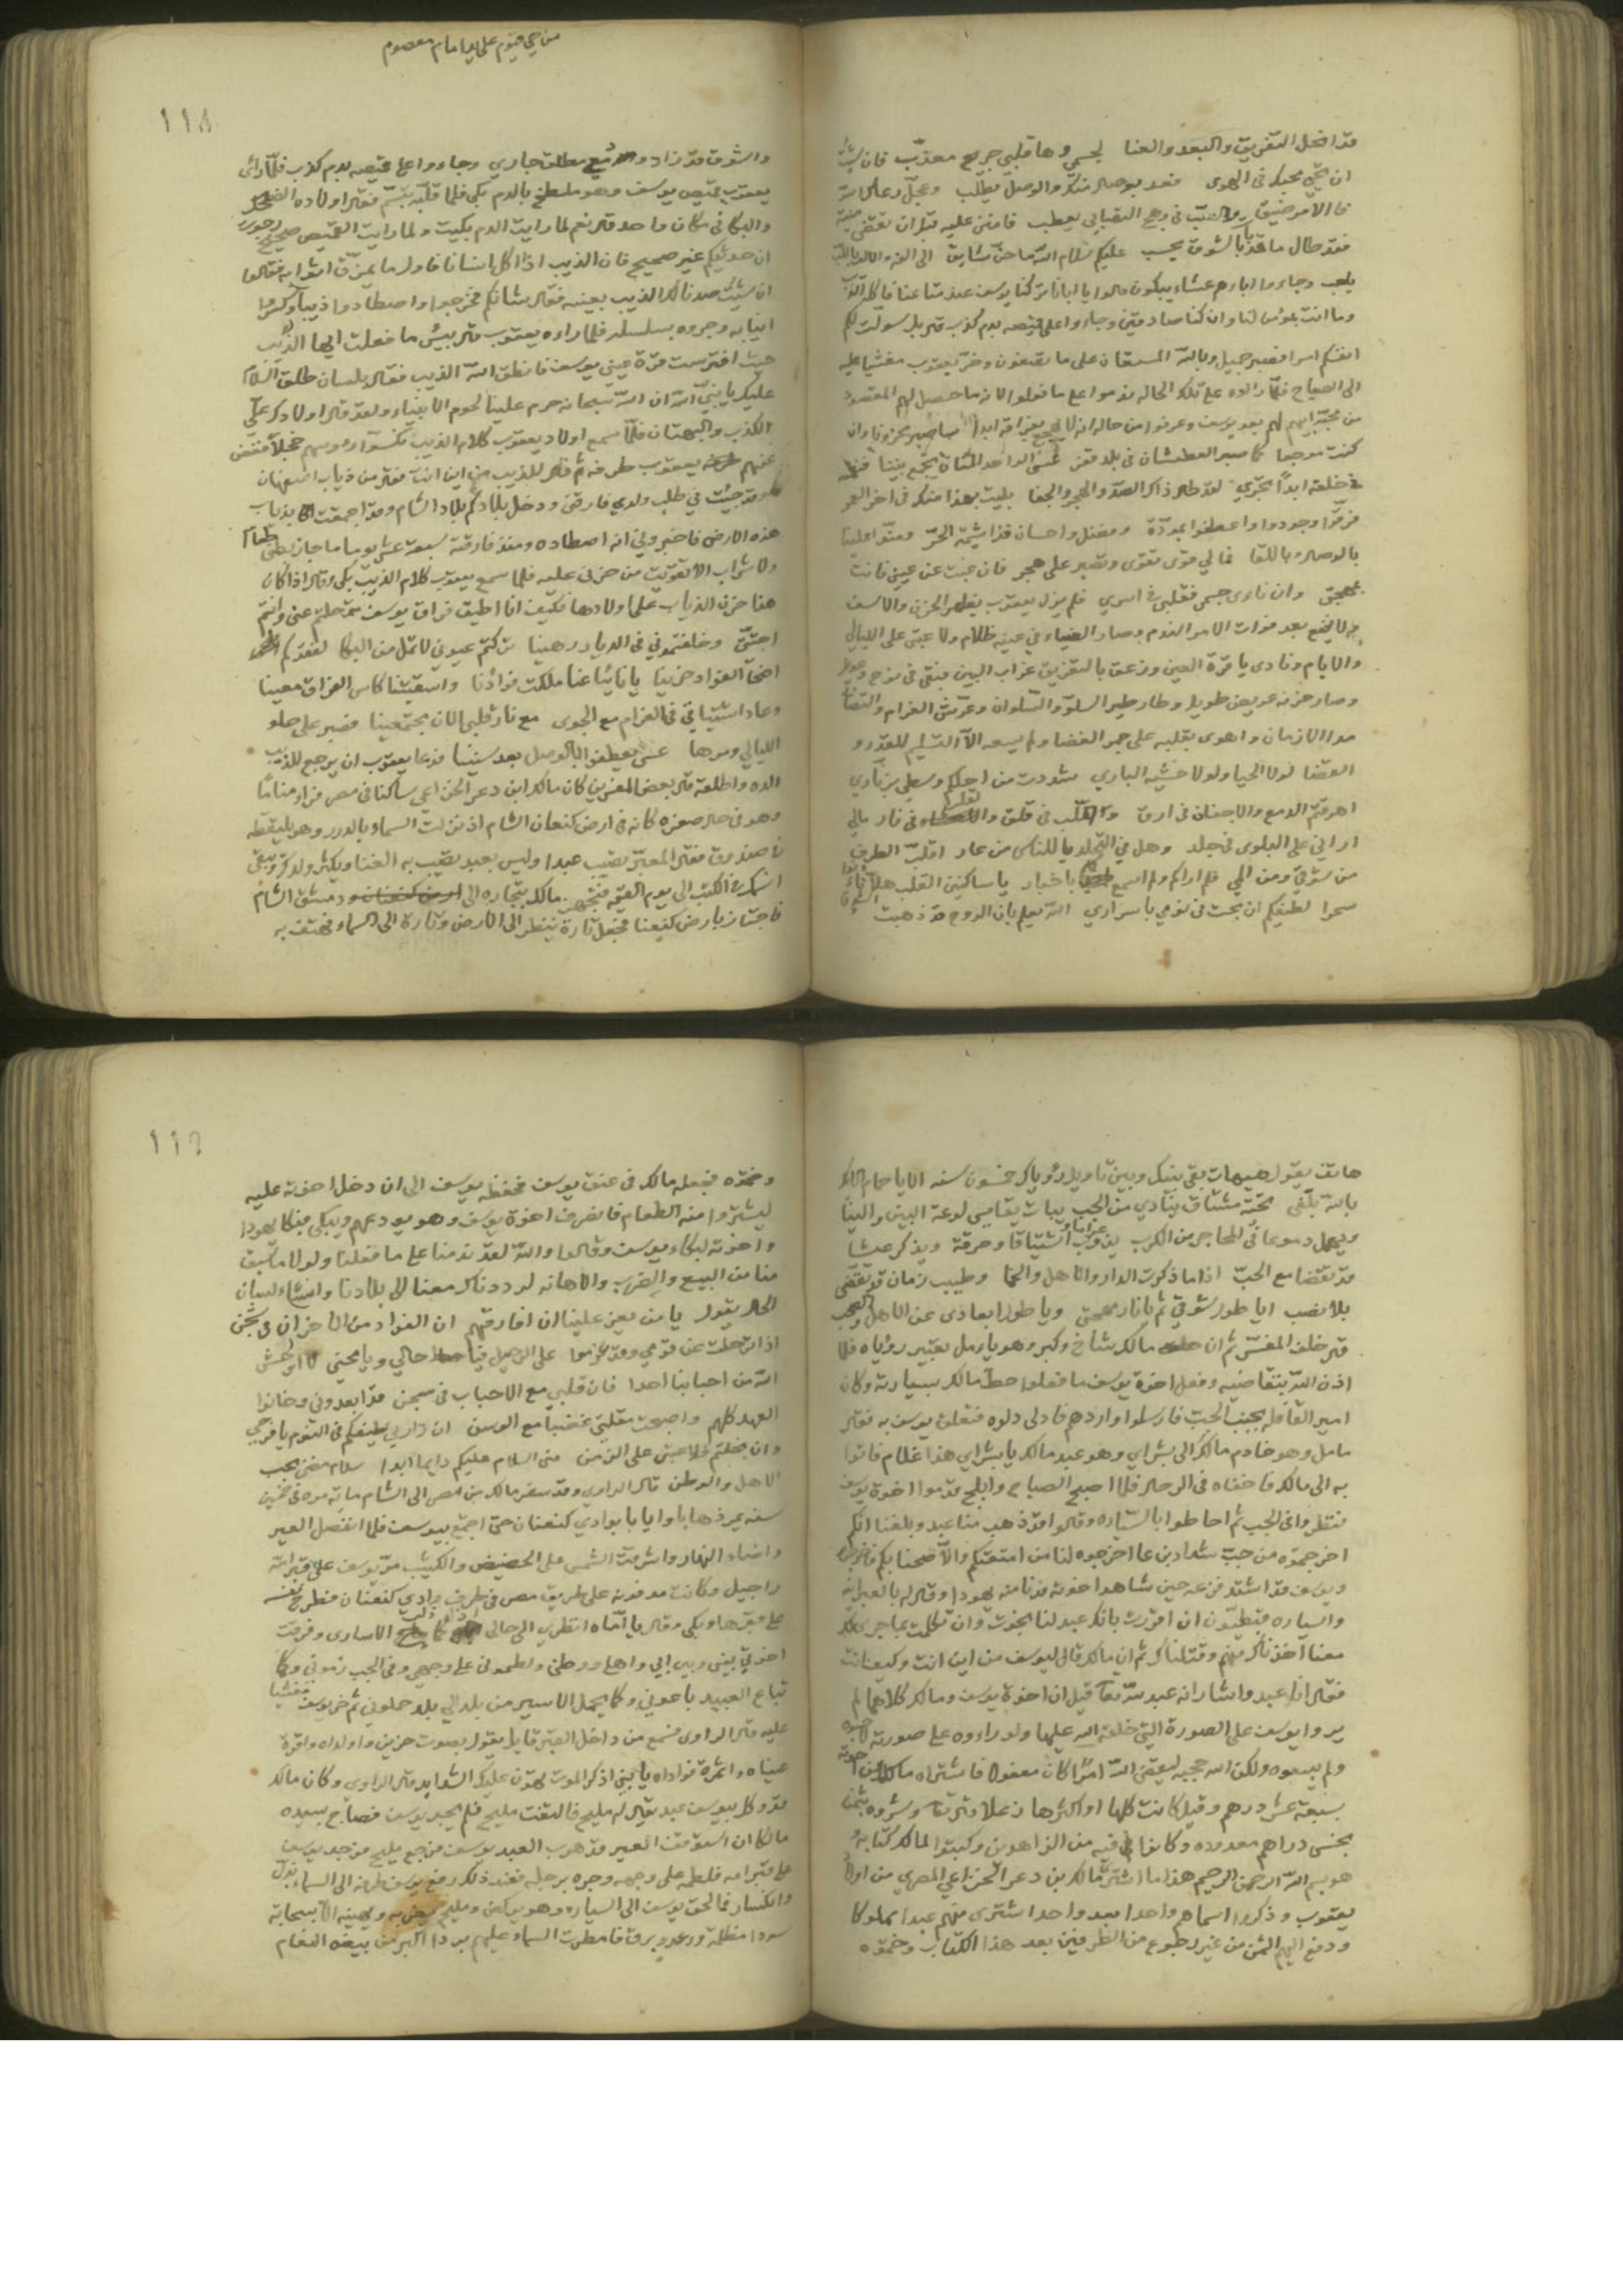 قد انحل التفريق والبعد والعنا لجسمي وها قلبي جريح معذب فان شئت
ان تحيي محبك في الهوى فعد بوصال منك والوصل يطلب وعجل رعاك الله
فالامر ضيق والصب في وهج التصابي يعطب فامنن عليه قبل ان تقضى
فقد طال ما بالشوق يحسب عليكم سلام الله ما حن شايق الى الفه
يلعب وجاءوا اباهم عشاء يبكون قالوا يا ابانا كنا يوسف عند متاعنا فاكله الذيب
وما انت بمؤمن لنا وان كنا صادقين وجاءوا على قميصه بدم كذب قال بل سولت لكم
انفسكم امرا فصبر جميل وبالله المستعان على ما تصفون وخر يعقوب مغشيا عليه
الى الصباح فلما راوه على تلك الحاله ندموا على ما فعلوا لانه ما حصل لهم المقصود
من محبة ابيهم لهم بعد يوسف وعرفوا من حاله انه لا
كنت موجعا كما صبر العطشان في بلد قفر عسى الواحد المنان يجمع بيننا
لقد طال ذاك الصد والهجر والجفا بليت بهذا منك في اخر العمر
فرقوا وجودوا واعطفوا بمودة وفضل واحسان فذا شيمة الحر ومنوا علينا
بالوصال وباللقا فما لي قوى تقوى وتصبر على هجر فان غبت عن عيني فانت
بمهجتي وان ناءى جسمي فقلبي في اسري فلم يزل يعقوب يظهر الحزن والاسف
ولا ينفع بعد فوات الامر الندم وصار الضياء في عينه ظلام ولا عتبى على الليالي
والايام ونادى يا قرة العين وزعق بالتفريق غراب البين فبقى في نوح
وصار حزنه عريض طويل وطار طير السلو والسلوان وعرش الغرام
مدا الازمان واهوى بقلبه على جمر الغضا ولم يسعه الا التسليم للقدر و
القضا لولا الحيا ولولا خشية الباري شددت من اجلكم وسطي بزناري
اهرقتم الدمع والاجفان في ارق والقلب في قلق في نار مالي
اراني على البلوى في جلد وهل في التجلد يا للناس من عار اقلب الطرف
من شوقي ومن المي فلم اراكم ولم اسمع باخبار يا ساكنين القلب
سحرا لطيفكم ان بحت في نومي باسراري الله يعلم بان الروح قد ذهبت
من حي قيوم على يد امام معصوم
١١٨
واشوق قد زاد و مطلق جاري وجاءوا على قميصه بدم كذب فلما رائى
يعقوب قميص يوسف وهو ملطخ بالدم بكى فلما قلبه تبسم فقال اولاده الضحك
والبكا في مكان واحد قال نعم لما رايت الدم بكيت ولما رايت القميص صحيح
ان حديثكم غير صحيح فان الذيب اذا اكل انسانا فاول ما يمزق اثوابه فقالوا
ان شئت صدنا لك الذيب بعينه فقال شانكم فخرجوا واصطادوا ذيبا وكسروا
انيابه وجروه بسلسله فلما راءه يعقوب قال بيس ما فعلت ايها الذيب
حيث افترست قرة عيني يوسف فانطق الله الذيب فقال بلسان طلق السلام
عليك يا نبي الله ان الله سبحانه حرم علينا لحوم الانبياء ولقد قال اولادك علي
الكذب والبهتان فلما سمع اولاد يعقوب كلام الذيب نكسوا رءوسهم خجلا فغض
عنهم يعقوب طرفه ثم قال للذيب من اين انت فقال من ذياب اصفهان
وقد جئت في طلب ولدي فارقني ودخل بلادكم بلاد الشام وقد اجمعت بذياب
هذه الارض فاخبروني انه اصطاده ومنذ فارقته سبعة عشر يوما ما جاز بطني طعام
ولا شراب الا تقويت من حزني عليه فلما سمع يعقوب كلام الذيب بكى وقال اذا كان
هذا حزن الذياب على اولادها فكيف انا اطيق فراق يوسف رحلتم عني وانتم
احبتي وخلفتموني في الديار رهينا تركتم عيوني لا تمل من البكا لفقدكم
اضحا الفواد حزينا يا نائيا عنا ملكت فوادنا واسقيتنا كاس الفراق معينا
وعاد اشتياقي في الغرام مع الجوى مع نار قلبي الان مجتمعينا فصبر على حلو
الليالي ومرها عسى يعطفوا بالوصل بعد سنينا فدعا يعقوب ان يرجع للذيب
ولده واطلقه قال بعض المفسرين كان مالك ابن دعر الخزاعي ساكنا في مصر فراى مناما
وهو في حال صغره كانه في ارض كنعان الشام اذ نزلت السماء بالدرر وهو يلتقطه
في صندوق فقال المعبر تصيب عبدا وليس بعبد تصيب به الغنا ويكثر ولدك ويبقى
اسمك في الكتب الى يوم القيمه فتجهز مالك بتجاره الى دمشق الشام
فاجتاز بارض كنعنا فجعل تارة ينظر الى الارض وتارة الى السماء فهتف به
هاتف يقول هيهات بقى بينك وبين تاويل رؤياك خمسون سنه الا يا حمام الايك
بالله بلغى تحية مشتاق ينادي من الجب يبات يقاسي لوعة البين والينا
ويهمل دموعا في المحاجر من الكرب يذوب اشتياقا وحرقة ويذكر عيشا
قد تقضا مع الحب اذا ما ذكرت الدار والاهل والحما وطيب زمان قد تقضى
بلا نصب ايا طول شوقي ثم يا نار مهجتي ويا طول ابعادى عن الاهل والصحب
قال خلف المفسر ثم ان مالك شاخ وكبر وهو يامل تعبير رؤياه فلما
اذن الله بتقاضيه وفعل اخوة يوسف ما فعلوا حط مالك بسيارته وكان
امير القافله بجنب الجب فارسلوا واردهم فادلى دلوه فتعلق يوسف به فقال
مامل وهو خادم مالك الى بشراي وهو عبد مالك يا بشراي هذا غلام فاتوا
به الى مالك فاخفاه في الرحال فلما اصبح الصباح وابلج قدموا اخوة يوسف
فنظروا في الجب ثم احاطوا بالسياره وقالوا قد ذهب منا عبد وبلغنا انكم
اخرجتموه من جب شداد بن عاد اخرجوه لنا من امتعتكم والا صحنا بكم
ويوسف قد اشتد فزعه حين شاهد اخوته فدنا منه يهودا وقال له بالعبرانيه
والسياره قبطيون ان اقررت بانك عبد لنا نجوت وان تكلمت بما جرى لك
معنا اخذناك منهم وقتلناك ثم ان مالك قال ليوسف من اين انت وكيف انت
فقال انا عبد واشار انه عبد لله تعا قيل ان اخوة يوسف ومالك كلاهما لم
يروا يوسف على الصورة التي خلقه الله عليها ولو راءوه على صورته
ولم يبيعوه ولكن الله حجبه ليقضى الله امرا كان مفعولا فاشتراه مالك من اخوته
بسبعة عشر درهم وقيل كانت كلها او اكثرها زغلا قال تعا وشروه بثمن
بخس دراهم معدوده وكانوا فيه من الزاهدين وكتبوا لمالك كتابا
هو بسم الله الرحمن الرحيم هذا ما اشترى مالك بن دعر الخزاعي المصري من اولاد
يعقوب وذكروا اسماهم واحدا بعد واحد اشترى منهم عبدا مملوكا
ودفع اليهم الثمن من غير رجوع من الطرفين بعد هذا الكتاب وختموه
١١٩
وختموه فجعله مالك في عنق يوسف فحفظه يوسف الى ان دخل اخوته عليه
ليشتروا منه الطعام فانصرف اخوة يوسف وهو يودعهم ويبكي فبكا يهودا
واخوته لبكاء يوسف وقالوا والله لقد ندمنا على ما فعلنا ولولا ما سبق
منا من البيع والضرب والاهانه لرددناك معنا الى بلادنا وانشاء لسان
الحال يقول يا من يعز علينا ان افارقهم ان الفواد من الاحزان في شجن
اذا ترحلت عن قومي وقد عزموا على الرحيل فيا حالي ويا محني
الله من احبابنا احدا فان قلبي مع الاحباب في سجن قد ابعدوني وخانوا
العهد كلهم واصبحت مقلتي غضبا مع الوسن ان زارني طيفكم في النوم يا فرحي
وان بخلتم فلا عتبى على الزمن منى السلام عليكم دايما ابدا سلام مضنى بحب
الاهل والوطن قال الراوي وقد سفر مالك من مصر الى الشام ماية مره في خمسين
سنه يمر ذهابا وايابا بوادي كنعنان حتى اجتمع بيوسف فلما انفصل العير
واضاء النهار واشرقت الشمس على الحضيض والكثيب مر يوسف على قبر امه
راحيل وكانت مدفونه على طريق مصر في طرف وادي كنعنان فطرح نفسه
على قبرها وبكى وقال يا اماه انظري الى حالي الاسارى وفرقت
اخوتي بيني وبين ابي واهلي ووطني ولطموني على وجهي وفي الجب رموني وكما
تباع العبيد باعوني وكما يحمل الاسير من بلد الى بلد حملوني ثم خر يوسف مغشيا
عليه قال الراوى فسمع من داخل القبر قايل يقول بصوت حزين وا ولداه واقرة
عيناه واثمرة فواداه يا بني اذكر الموت تهون عليك الشدايد قال الراوي وكان مالك
قد وكل بيوسف عبد يقال له مليح فالتفت مليح فلم يجد يوسف فصاح بسيده
مالكا ان استوقف العير قد هرب العبد يوسف فرجع مليح فوجد يوسف
على قبر امه فلطمه على وجهه وجره برجله فعند ذلك رفع يوسف طرفه الى السماء بذل
وانكسار فما لحق يوسف الى السياره وهو يبكى ومليح يضربه ويهينه الا بسحابة
سودا مظلمة ورعد وبرق فامطرت السماء عليهم بردا اكبر من بيض النعام